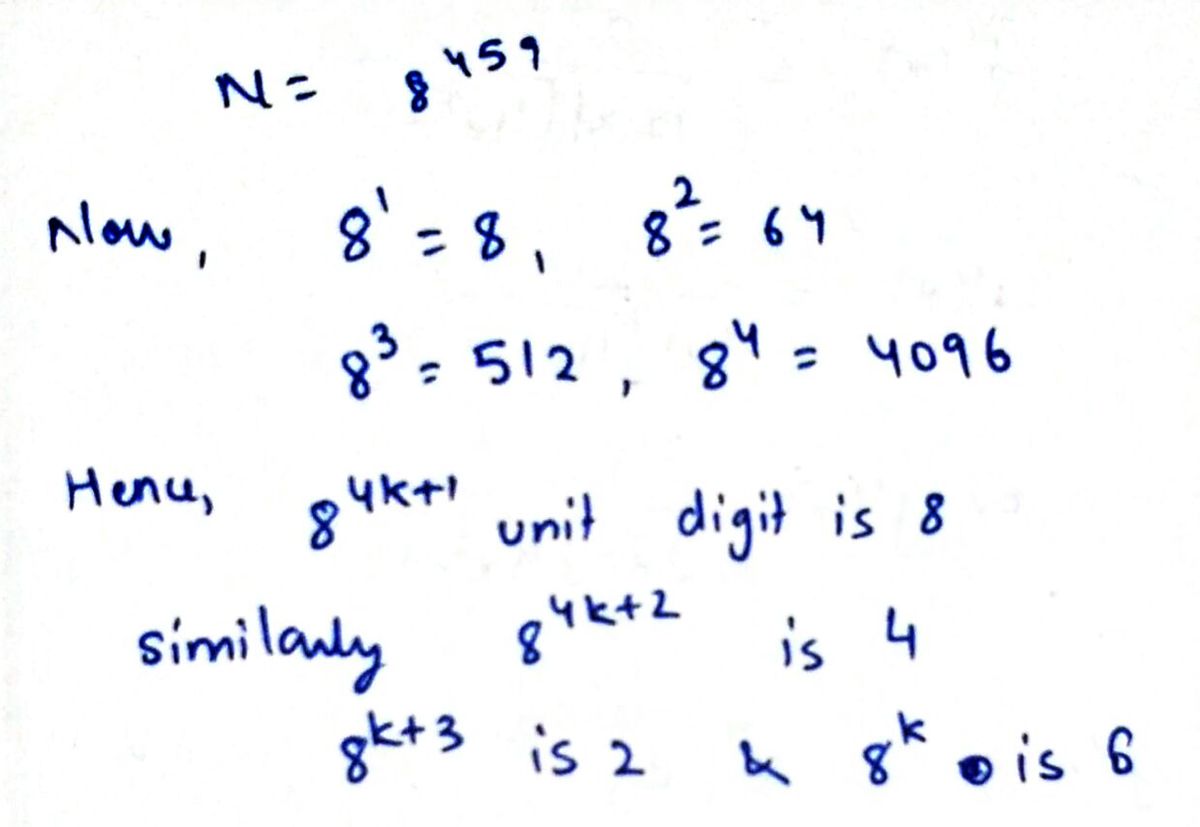 N = 8^459
Now, 8^1 = 8, 8^2 = 64
8^3 = 512, 8^4 = 4096
Hence, 8^4k+1 unit digit is 8
similarly 8^4k+2 is 4
8^k+3 is 2 & 8^k is 6